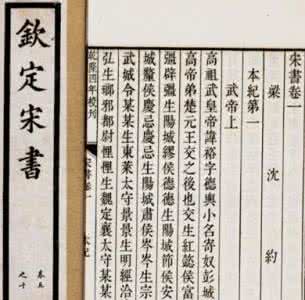 宋書卷一
梁 沈 約
本紀第一
武帝上
高祖武皇帝諱裕字德輿小名寄奴彭城
高帝弟楚元王交之後也交生紅懿侯富
彊辟彊生陽城繆侯德德生陽城節侯安
城釐侯慶忌慶忌生陽城肅侯岑岑生宗
武城令某某生東萊太守景景生明經洽
弘生瑯邪都尉悝悝生魏定襄太守某某
乾隆四年校刊
宋書卷一
本紀
欽定宋書
卷五
之十